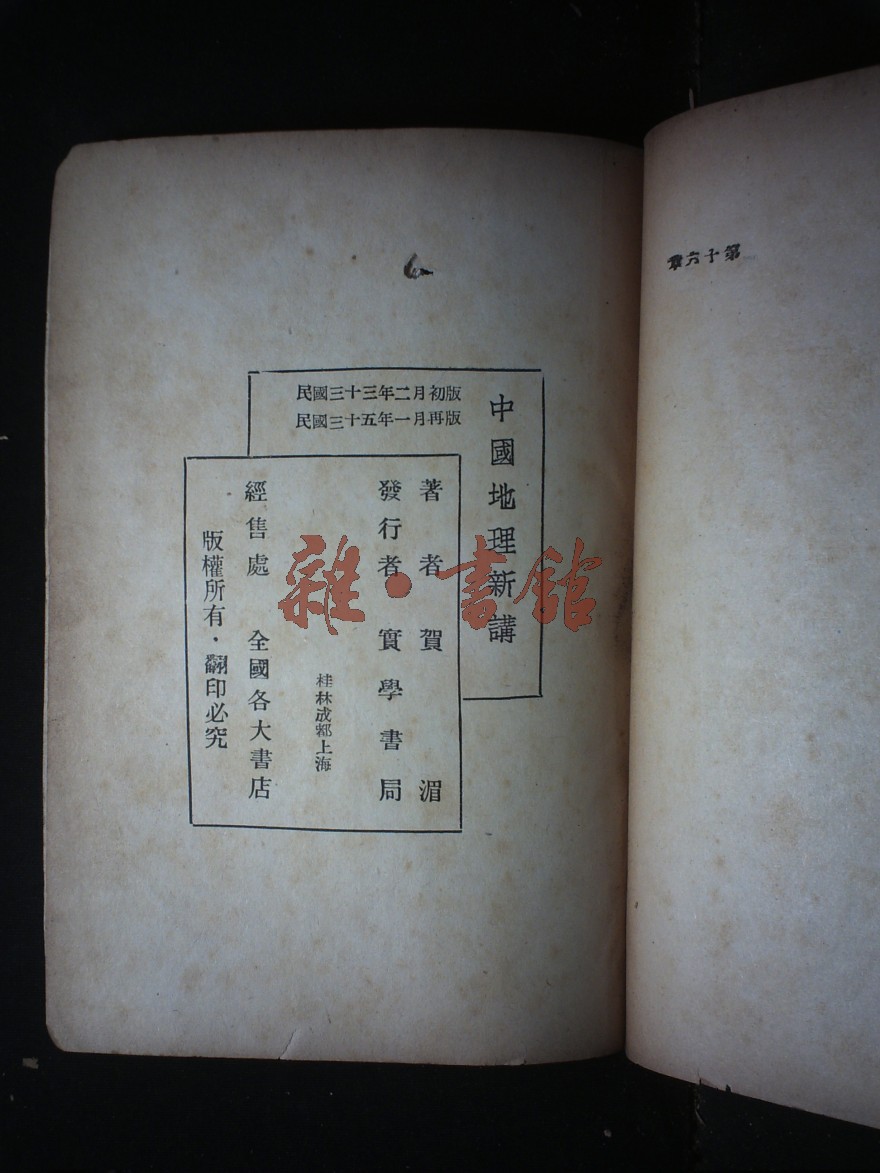 中國地理新講
民國三十三年二月初版
民國三十五年一月再版
著者 賀湄
發行者 實學書局
桂林成都上海
經售處 全國各大書店
版權所有·翻印必究
雜·書館
第十六章